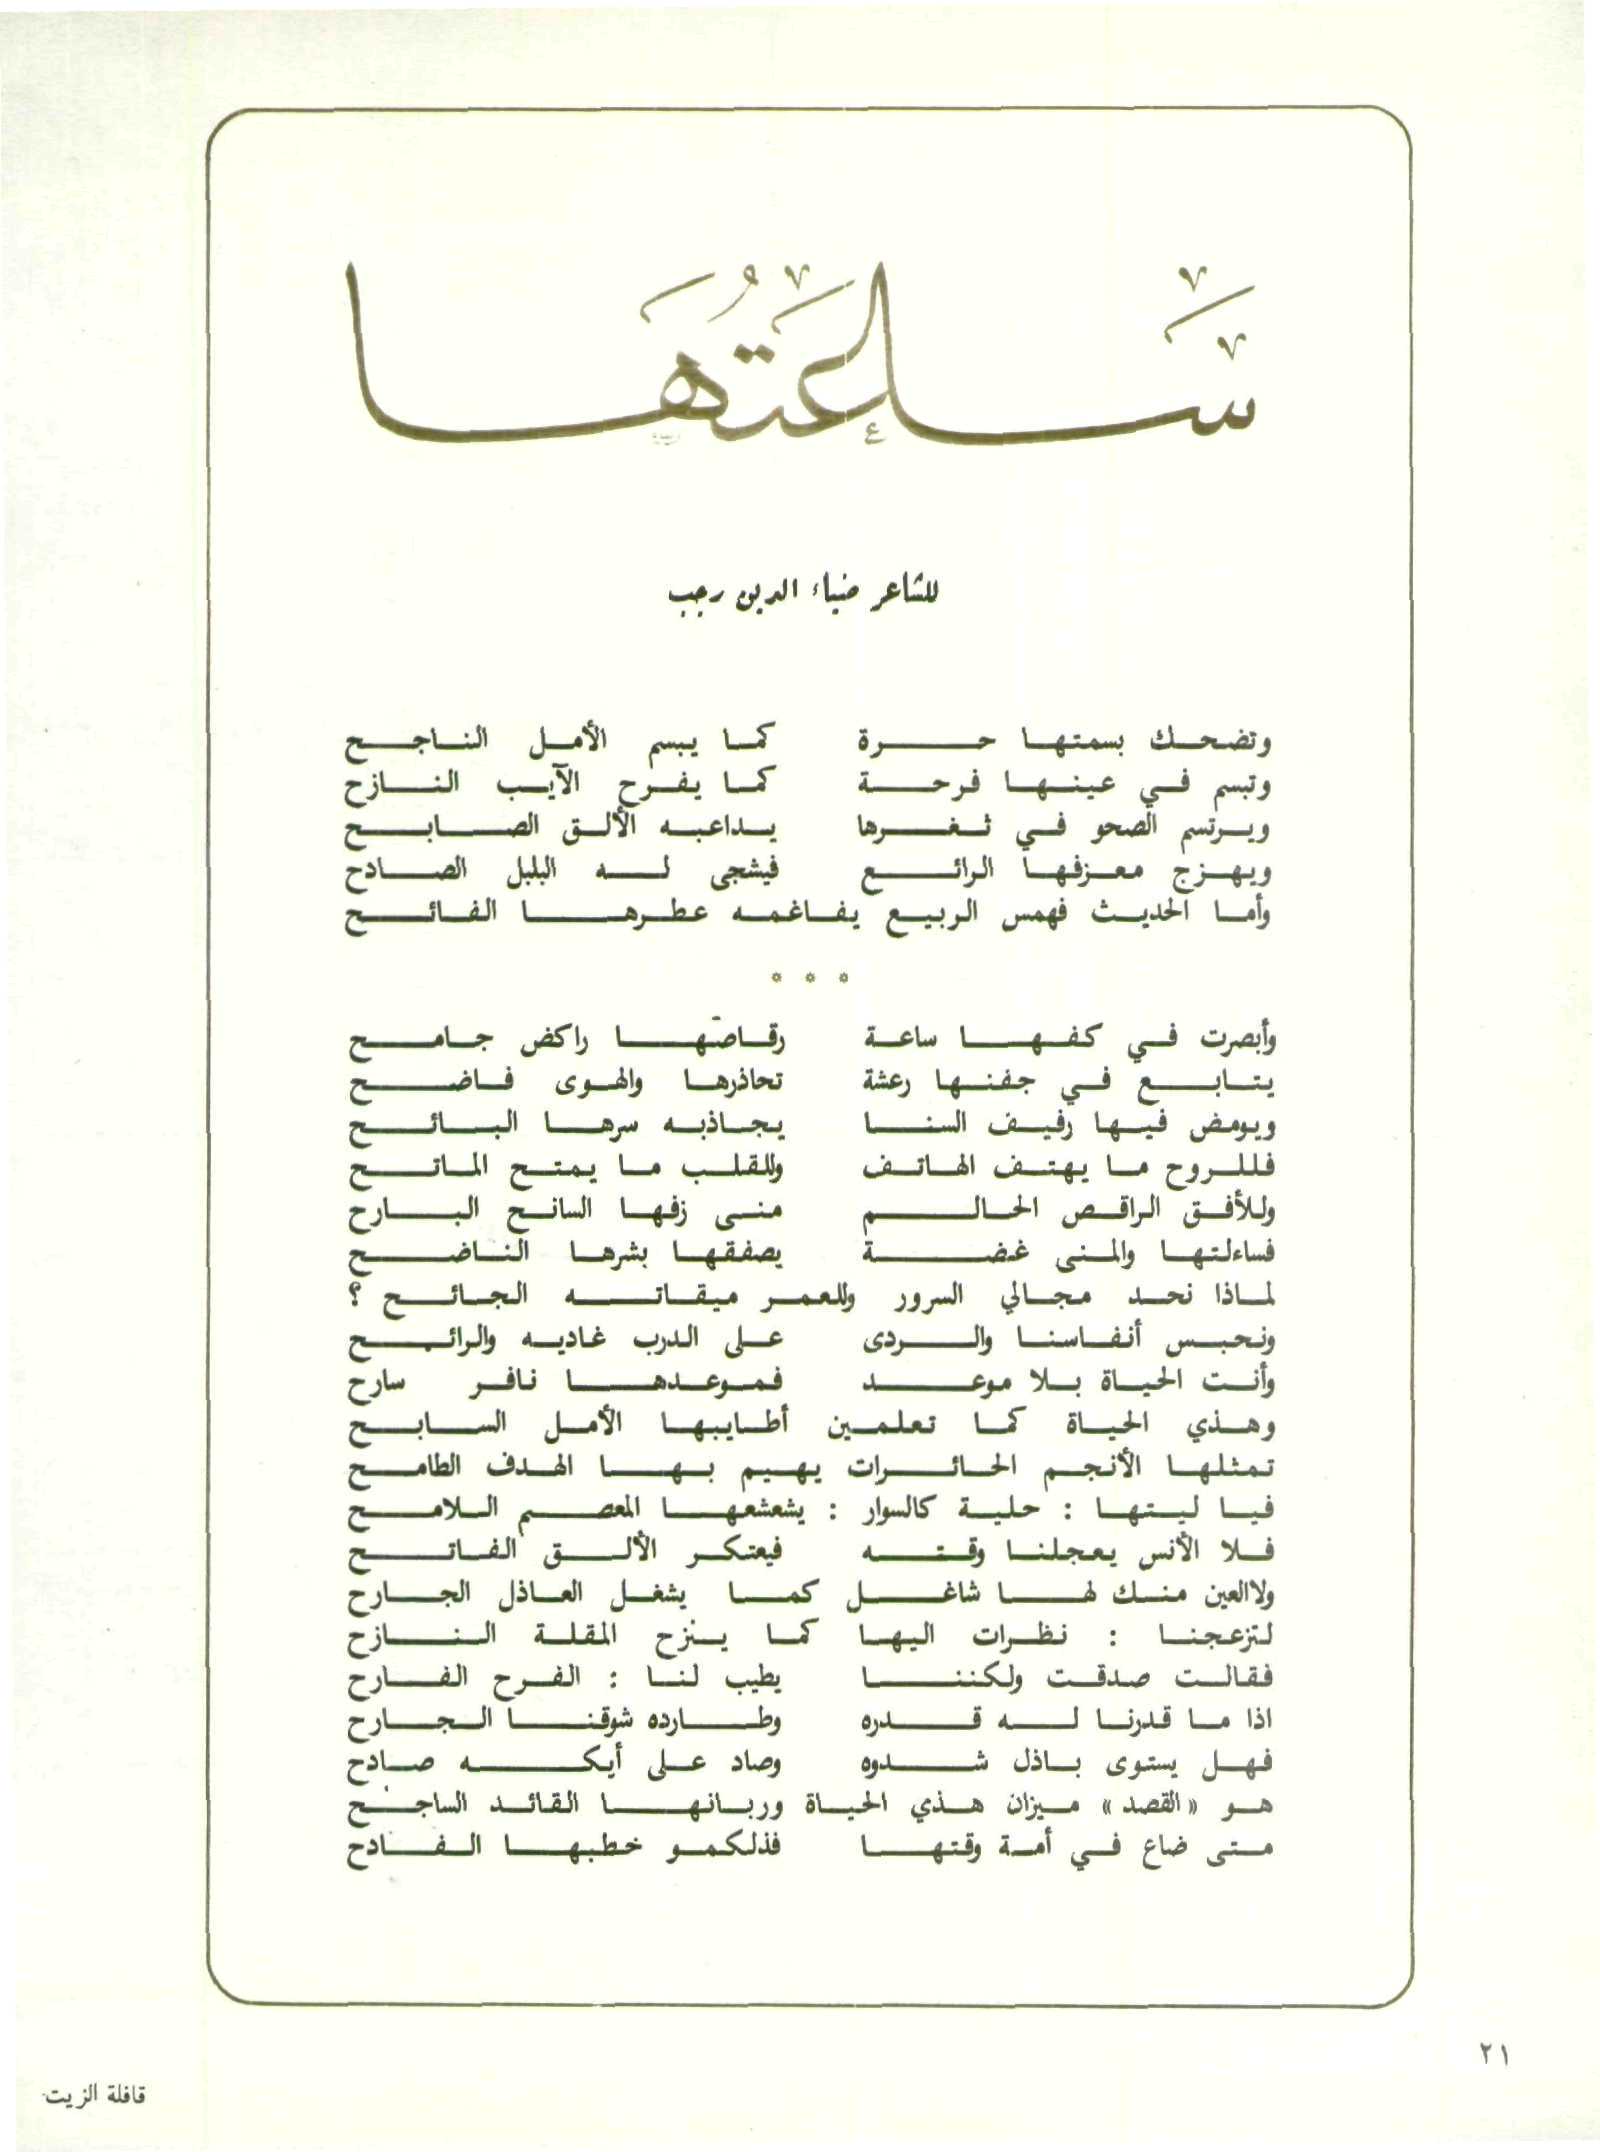 سَاعَتُهَا
للشاعر ضياء الدين رجب
وتضحك بسمتها حرة كما يبسم الأمل الناجح
وتبسم في عينها فرحة كما يفرح الآيب النازح
ويرتسم الصحو في ثغرها يداعبه الألق الصابح
ويهزج معزفها الرائع فيشجى له البلبل الصادح
وأما الحديث فهمس الربيع يفاغمه عطرها الفائح
* * *
وأبصرت في كفها ساعة رقاصها راكض جامح
يتابع في جفنها رعشة تحاذرها والهوى فاضح
ويومض فيها رفيف السنا يجاذبه سرها البائح
فللروح ما يهتف الهاتف وللقلب ما يمتح الماتح
وللأفق الراقص الحالم منى زفها السانح البارح
فساءلتها والمنى غضة يصفقها بشرها الناضح
لماذا نحد مجالي السرور وللعمر ميقاته الجائح ؟
ونحبس أنفاسنا والردى على الدرب غاديه والرائح
وأنت الحياة بلا موعد فموعدها نافر سارح
وهذي الحياة كما تعلمين أطايبها الأمل السابح
تمثلها الأنجم الحائرات يهيم بها الهدف الطامح
فيا ليتها : حلية كالسوار : يشعشعها المعصم اللامح
فلا الأنس يعجلنا وقته فيعتكر الألق الفاتح
ولا العين منك لها شاغل كما يشغل العاذل الجارح
لتزعجنا : نظرات اليها كما ينزح المقلة النازح
فقالت صدقت ولكننا يطيب لنا : الفرح الفارح
اذا ما قدرنا له قدره وطارده شوقنا الجارح
فهل يستوى باذل شدوه وصاد على أيكه صادح
هو «القصد» ميزان هذي الحياة وربانها القائد الساجح
متى ضاع في أمة وقتها فذلكمو خطبها الفادح
٢١
قافلة الزيت